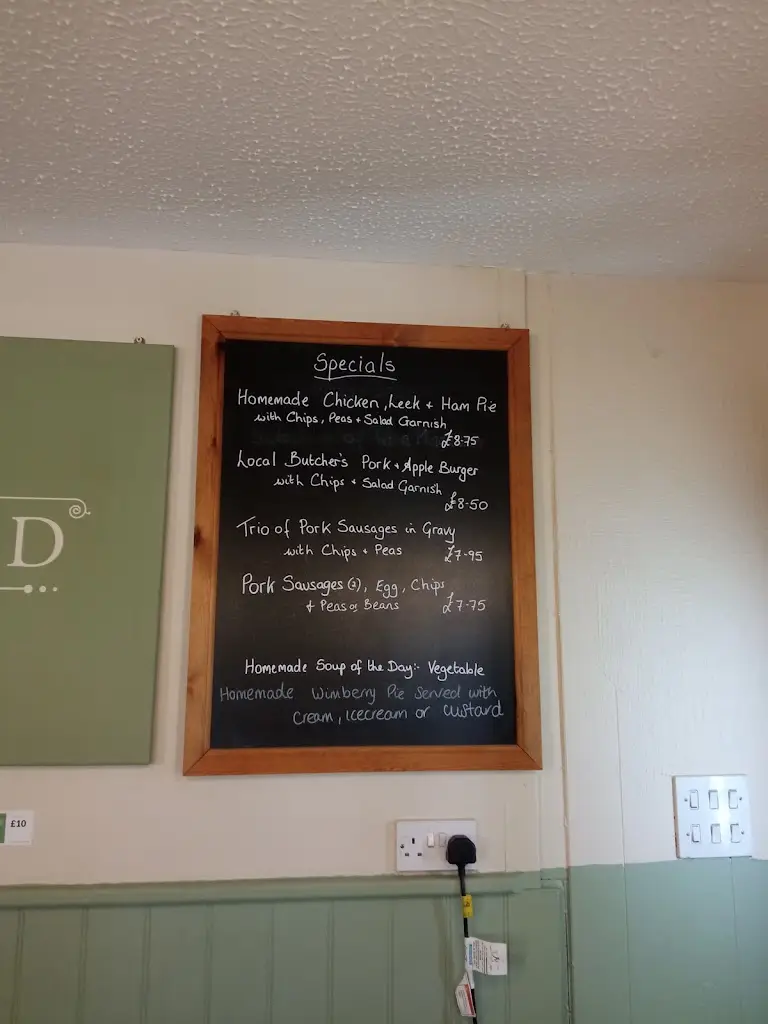 Specials
Homemade Chicken, Leek + Ham Pie
with Chips, Peas + Salad Garnish
£8.75
Local Butcher's Pork + Apple Burger
with Chips + Salad Garnish
£8.50
Trio of Pork Sausages in Gravy
with Chips + Peas £7.95
Pork Sausages (2), Egg, Chips
+ Peas or Beans £7.75
Homemade Soup of the Day:- Vegetable
Homemade Wimberry Pie Served with
Cream, icecream or custard
D
£10